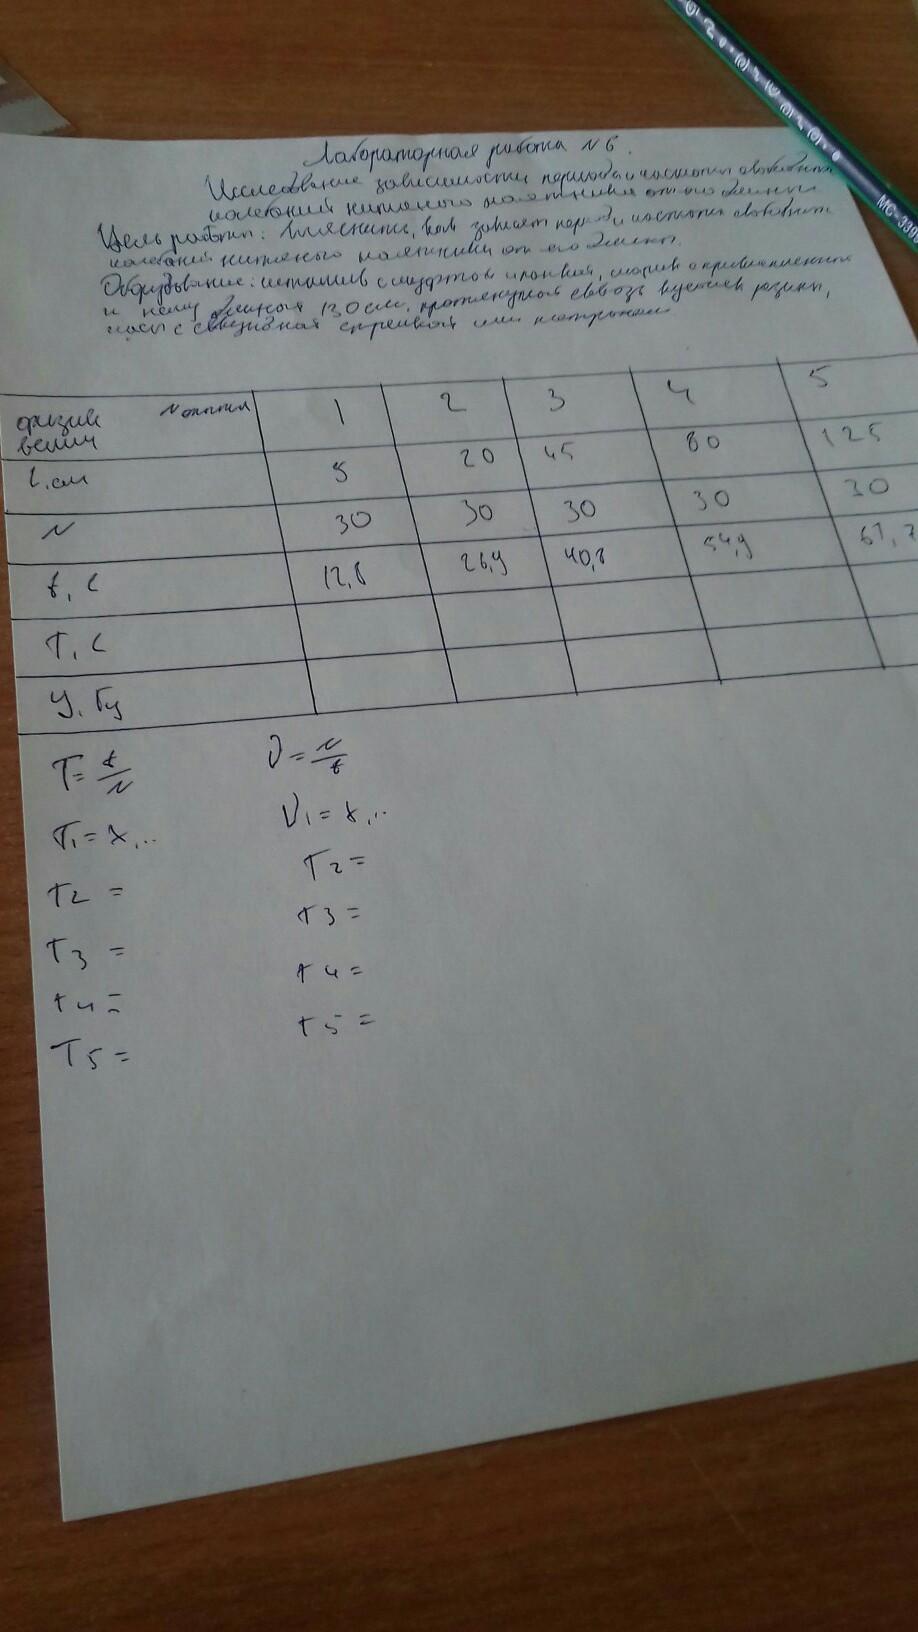 Лабораторная работа N 6.
Исследование зависимости периода и частоты свободных
колебаний нитяного маятника от его длины
Цель работы: выяснить, как зависят период и частота свободных
колебаний нитяного маятника от его длины.
Оборудование: штатив с муфтой и лапкой, шарик с прикреплённой
к нему нитью 130 см, протянутой сквозь кусочек резины,
часы с секундной стрелкой или метроном
физич велич N опыта 1 2 3 4 5
l, см 5 20 45 80 125
N 30 30 30 30 30
t, с 12,8 26,9 40,8 54,9 67,7
T, с
У, Гц
T = t/N ν = N/t
T1 = x,.. ν1 = x,..
T2 = T2 =
T3 = T3 =
T4 = T4 =
T5 = T5 =
MC-339